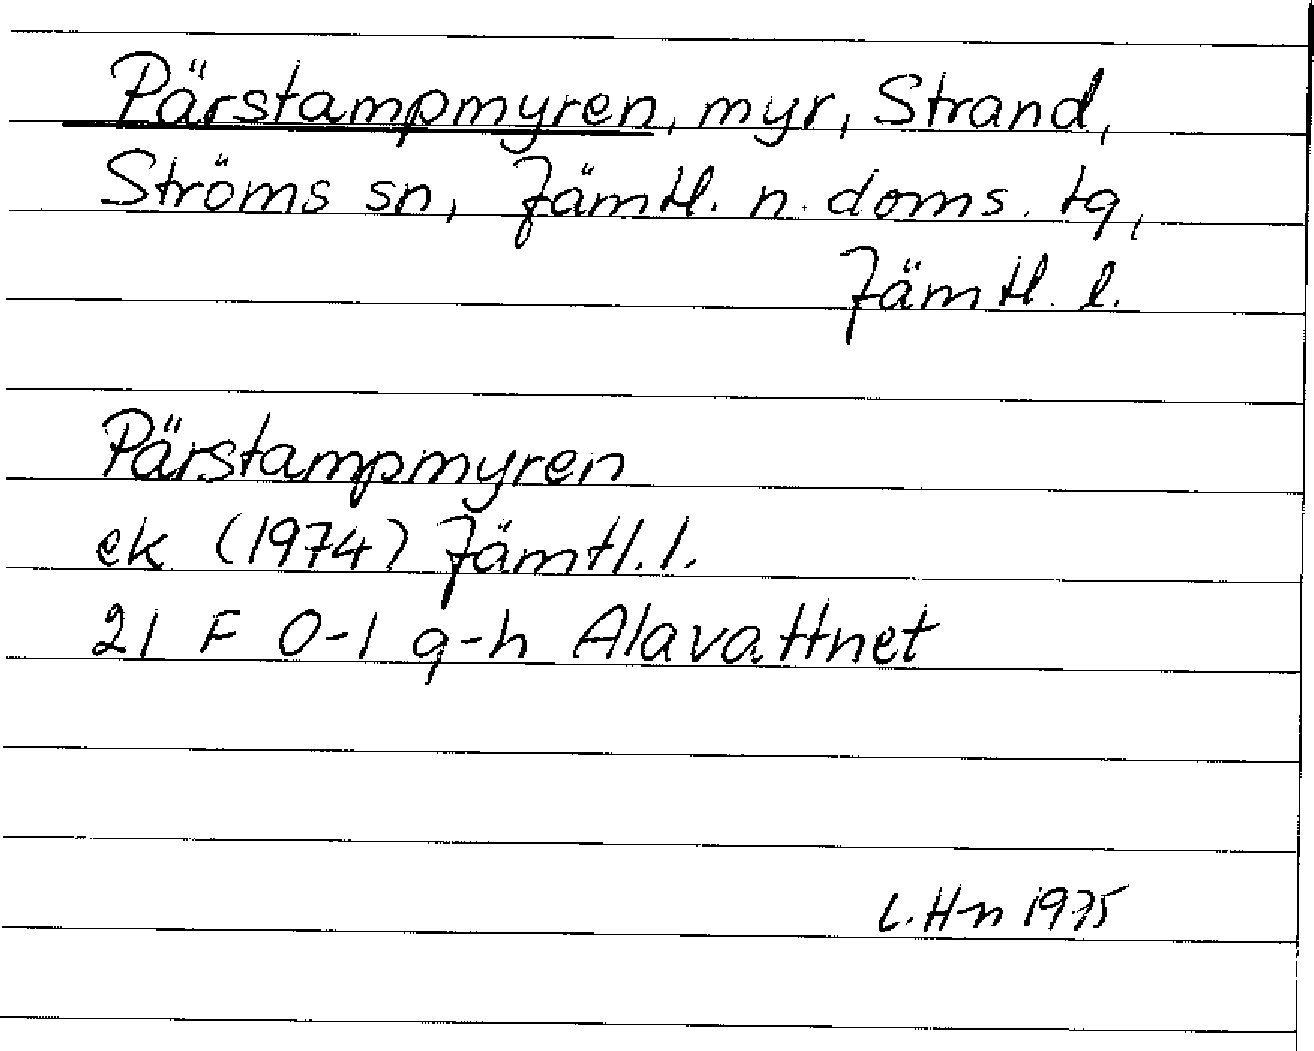 Pärstampmyren, myr, Strand,
Ströms sn, Jämtl. n. doms. tg,
Jämtl. l.
Pärstampmyren
ek (1974) Jämtl. l.
21 F 0-1 g-h Alavattnet
L. H-n 1975